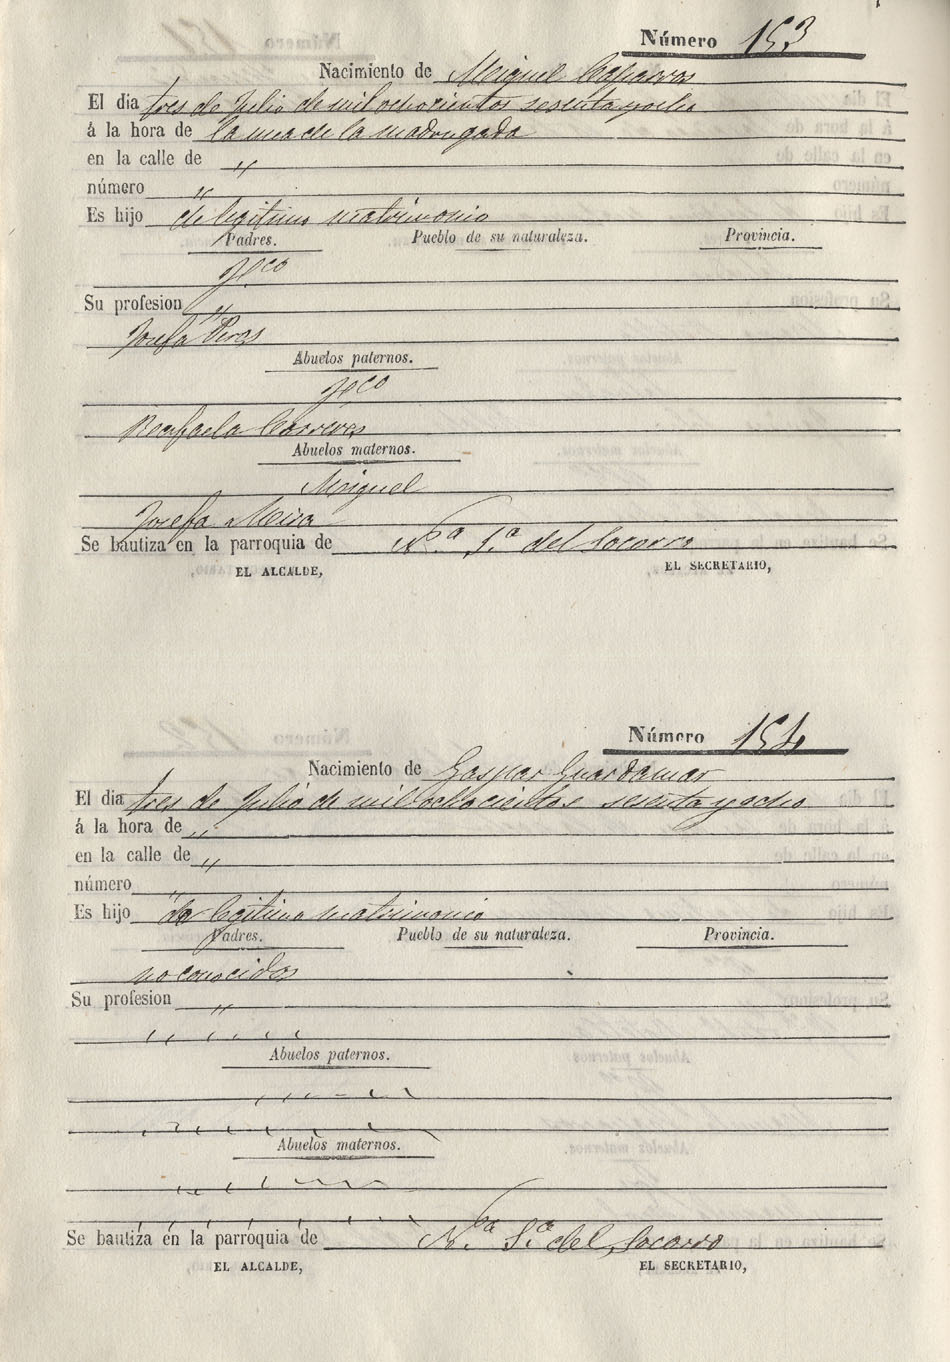 Número 153
Nacimiento de Miguel Caparros
El dia tres de Julio de mil ochocientos sesenta y ocho
á la hora de la una de la madrugada
en la calle de "
número "
Es hijo de legitimo matrimonio
Padres. Pueblo de su naturaleza. Provincia.
Fco
Su profesion "
Josefa Peres
Abuelos paternos.
Fco
Rafaela Carreres
Abuelos maternos.
Miguel
Josefa Mira
Se bautiza en la parroquia de Na Sa del Socorro
EL ALCALDE, EL SECRETARIO,
Número 154
Nacimiento de Gaspar Guardamar
El dia tres de Julio de mil ochocientos sesenta y ocho
á la hora de "
en la calle de "
número "
Es hijo de legitimo matrimonio
Padres. Pueblo de su naturaleza. Provincia.
no conocidos
Su profesion "
Abuelos paternos.
Abuelos maternos.
Se bautiza en la parroquia de Na Sa del Socorro
EL ALCALDE, EL SECRETARIO,